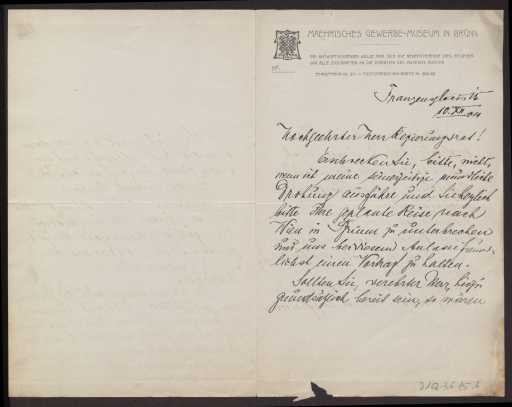 MAEHRISCHES GEWERBE-MUSEUM IN BRÜNN
Franzensglacis 15
10. XII 04
Hochgeehrter Herr Regierungsrat!
Erschrecken Sie, bitte, nicht,
wenn ich meine seinerzeitige mündliche
Drohung ausführe und Sie höflich
bitte Ihre geplante Reise nach
Wien in Brünn zu unterbrechen
und uns bei diesem Anlass freund-
lichst einen Vortrag zu halten.
Sollten Sie, verehrter Herr, hiezu
grundsätzlich bereit sein, so wären